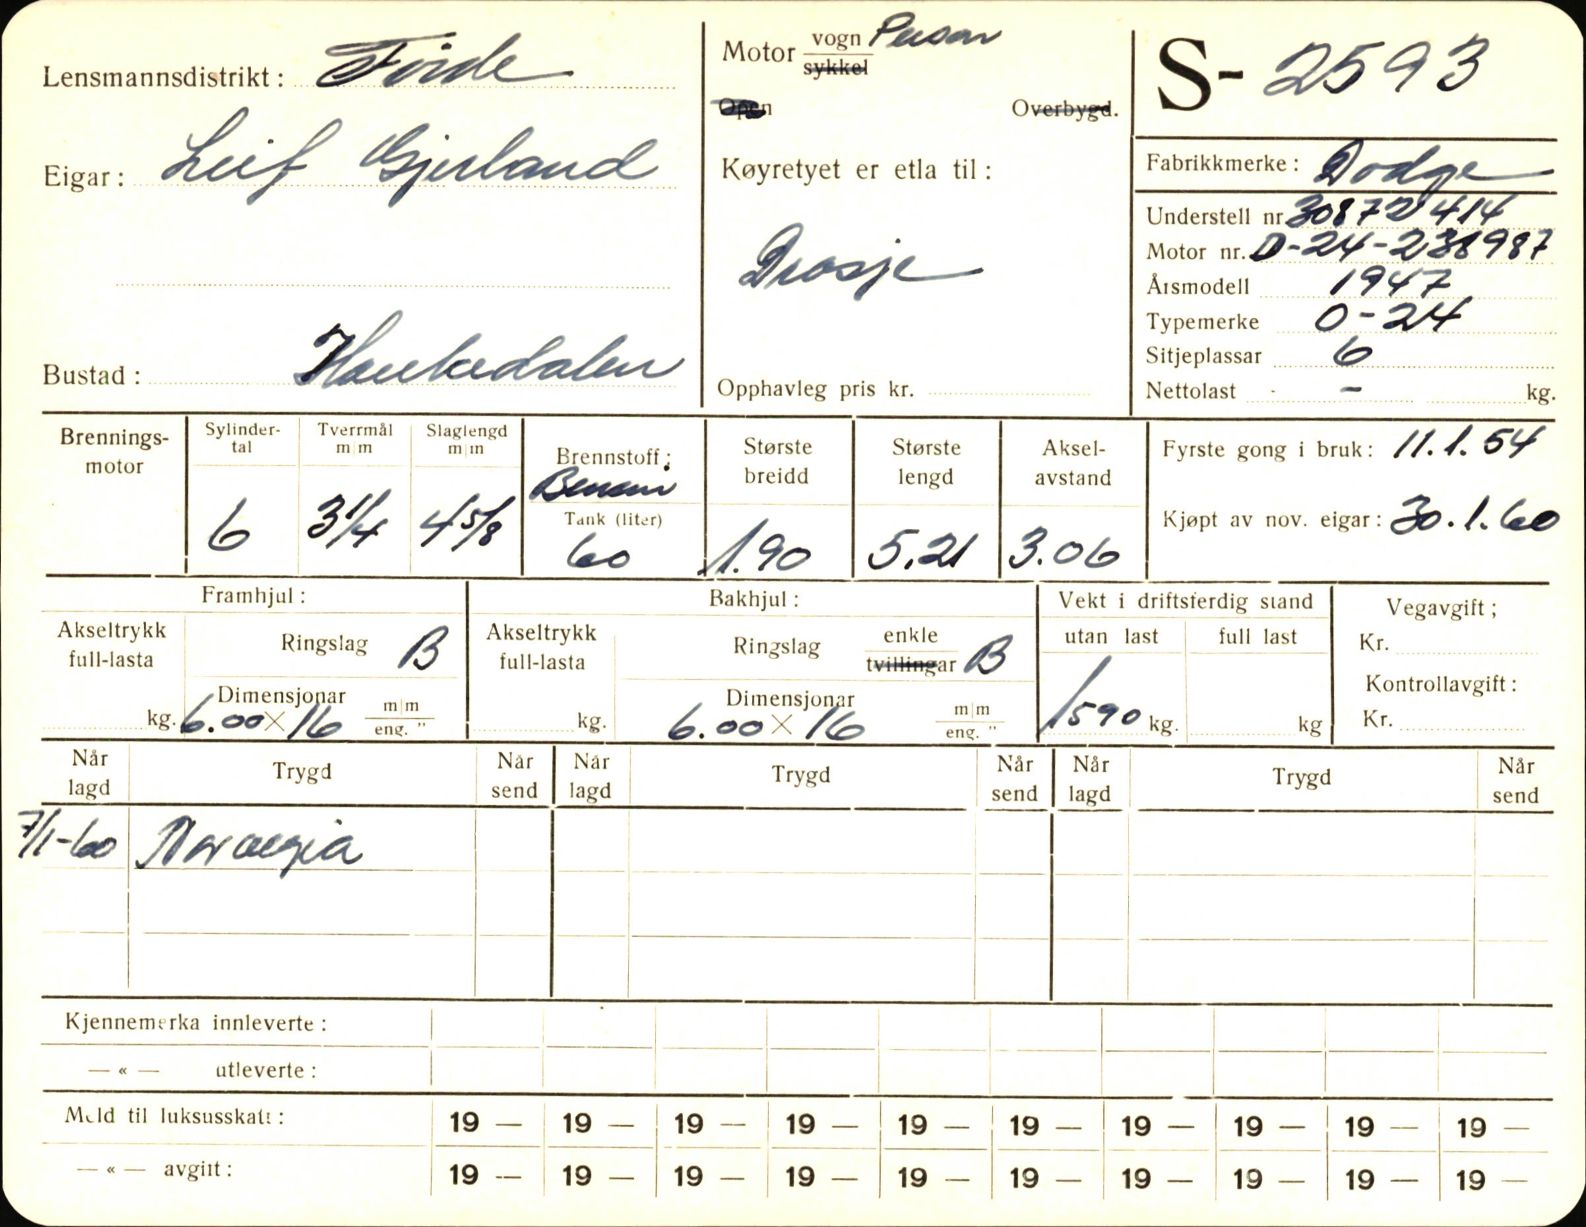 Lensmannsdistrikt: Førde
Eigar: Leif Gjerland
Bustad: Haukedalen
Motor vogn Person
sykkel
Open Overbygd.
Køyretyet er etla til:
Drosje
Opphavleg pris kr.
S- 2593
Fabrikkmerke: Dodge
Understell nr. 30872414
Motor nr. D-24-238987
Årsmodell 1947
Typemerke D-24
Sitjeplassar 6
Nettolast - kg.
Brennings-
motor
Sylinder-
tal
6
Tverrmål
m|m
3 1/4
Slaglengd
m|m
4 5/8
Brennstoff:
Bensin
Tank (liter)
60
Største
breidd
1.90
Største
lengd
5.21
Aksel-
avstand
3.06
Fyrste gong i bruk: 11.1.54
Kjøpt av nov. eigar: 30.1.60
Framhjul:
Akseltrykk
full-lasta
kg.
Ringslag B
Dimensjonar
6.00 × 16 m|m
eng. "
Bakhjul:
Akseltrykk
full-lasta
kg.
Ringslag enkle
tvillingar B
Dimensjonar
6.00 × 16 m|m
eng. "
Vekt i driftsferdig stand
utan last full last
1590 kg. kg
Vegavgift;
Kr.
Kontrollavgift:
Kr.
Når
lagd
Trygd
Når
send
Når
lagd
Trygd
Når
send
Når
lagd
Trygd
Når
send
7/1-60 Norvegia
Kjennemerka innleverte:
— « — utleverte:
Meld til luksusskatt: 19 — 19 — 19 — 19 — 19 — 19 — 19 — 19 — 19 — 19 —
— « — avgitt: 19 — 19 — 19 — 19 — 19 — 19 — 19 — 19 — 19 — 19 —